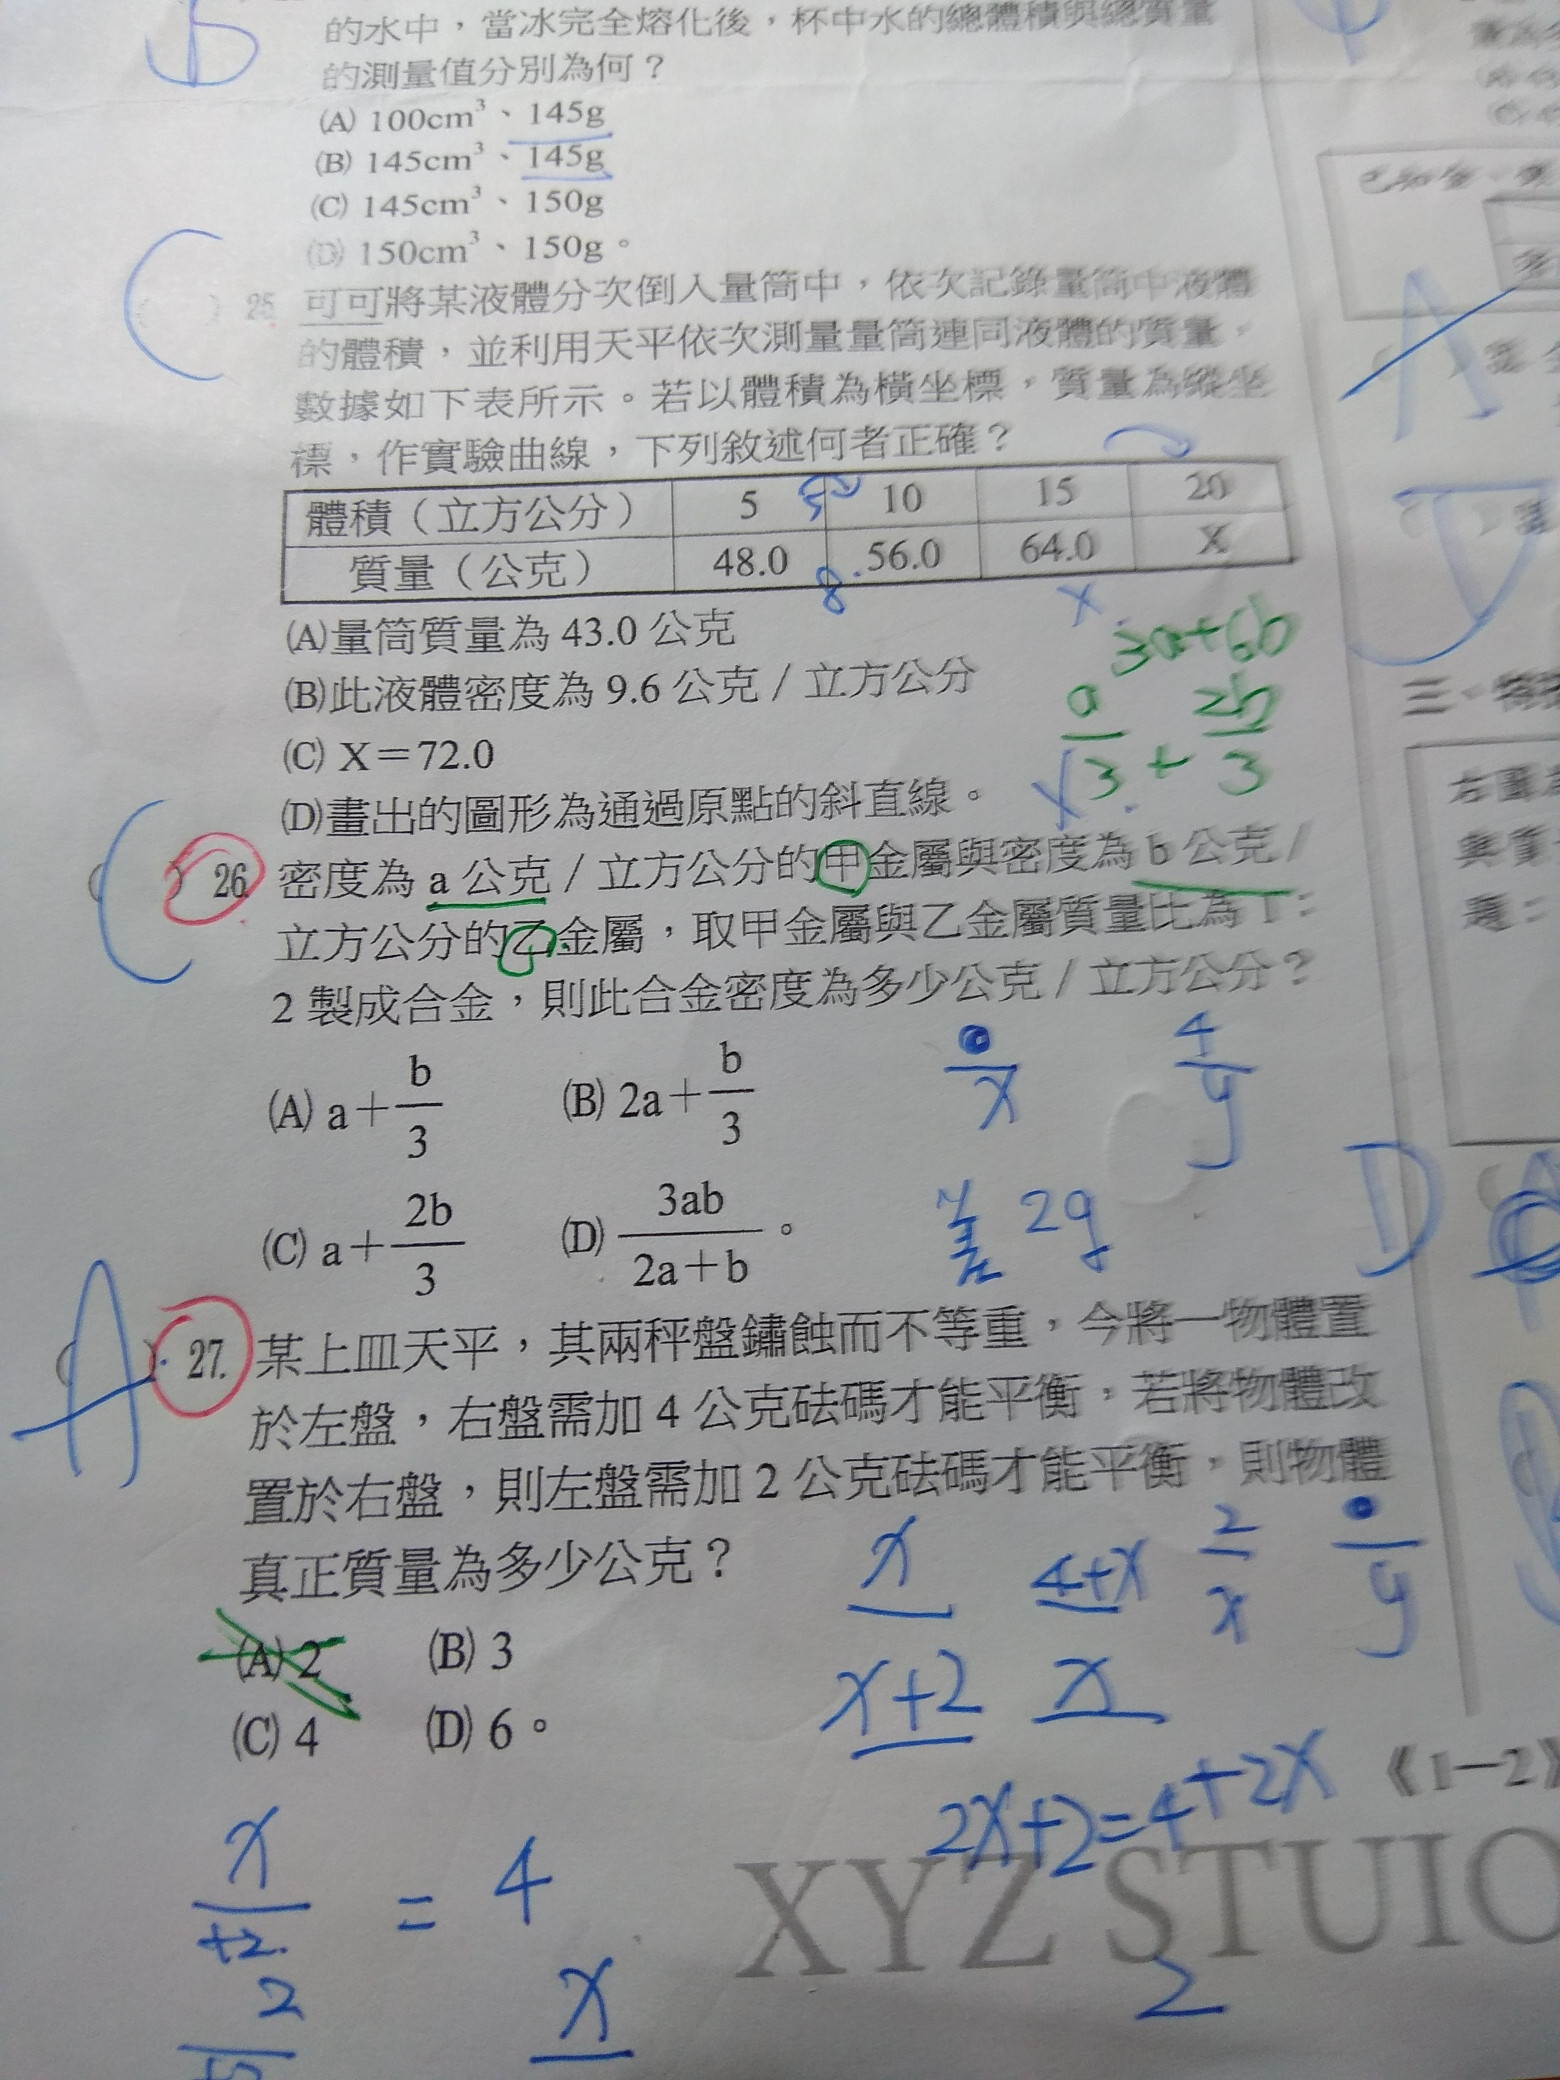 的水中，當冰完全熔化後，杯中水的總體積與總質量
的測量值分別為何？
(A) 100cm³、145g
(B) 145cm³、145g
(C) 145cm³、150g
(D) 150cm³、150g。
C
25 可可將某液體分次倒入量筒中，依次記錄量筒中液體
的體積，並利用天平依次測量量筒連同液體的質量，
數據如下表所示。若以體積為橫坐標，質量為縱坐
標，作實驗曲線，下列敘述何者正確？
體積（立方公分） 5 10 15 20
質量（公克） 48.0 56.0 64.0 X
5
8
x
(A)量筒質量為 43.0 公克
(B)此液體密度為 9.6 公克 / 立方公分
(C) X＝72.0
(D)畫出的圖形為通過原點的斜直線。
3a+6b
a/3 + 2b/3
C
26. 密度為 a 公克 / 立方公分的甲金屬與密度為 b 公克 /
立方公分的乙金屬，取甲金屬與乙金屬質量比為 1：
2 製成合金，則此合金密度為多少公克 / 立方公分？
(A) a＋b/3 (B) 2a＋b/3
(C) a＋2b/3 (D) 3ab/2a＋b。
x
4
y
差 2g
A
27. 某上皿天平，其兩秤盤鏽蝕而不等重，今將一物體置
於左盤，右盤需加 4 公克砝碼才能平衡，若將物體改
置於右盤，則左盤需加 2 公克砝碼才能平衡，則物體
真正質量為多少公克？
(A) 2 (B) 3
(C) 4 (D) 6。
x 4+x 2/x y
x+2 x
2x+2=4+2x
x/+2 = 4/x
2
2
《1－2》
XYZ STUIO
D
已知
三、
右圖
題：